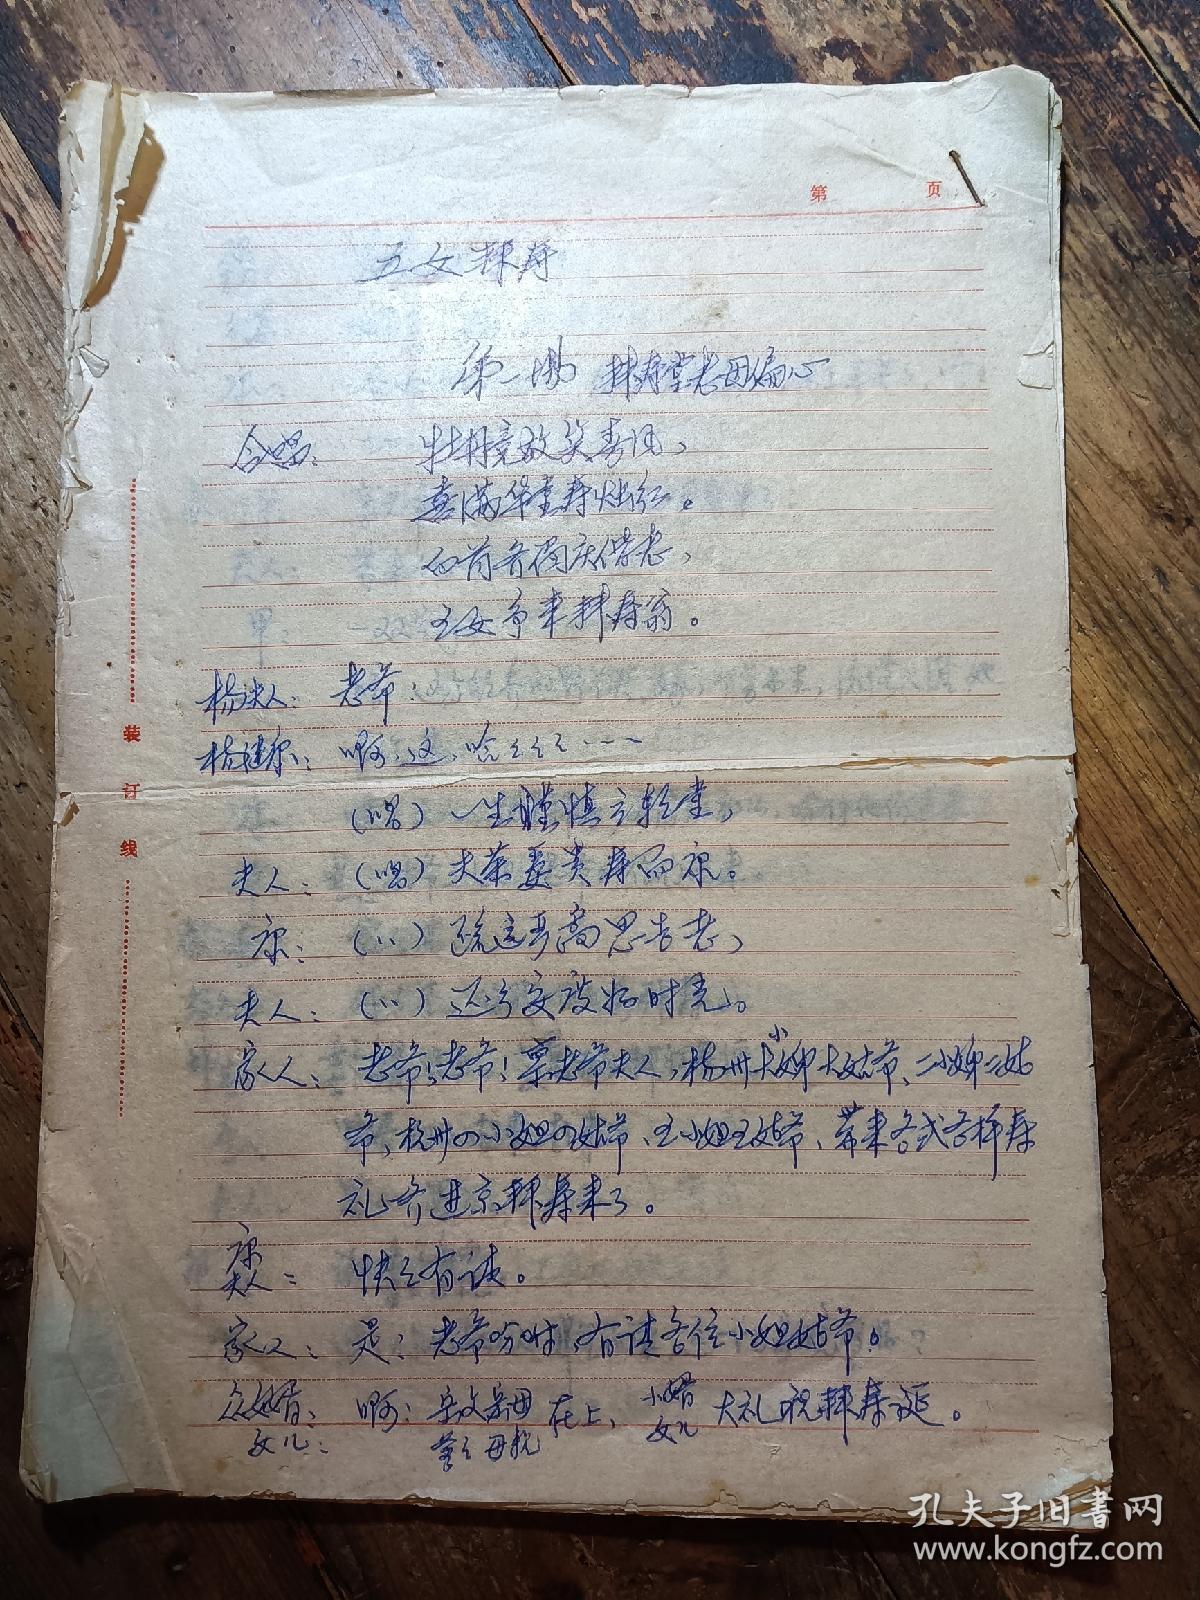 第 页
五女拜寿
第一场 拜寿堂老母偏心
合唱: 牡丹竞放笑春风,
喜满华堂寿烛红。
白首齐眉庆偕老,
五女争来拜寿翁。
杨夫人: 老爷:
杨继康: 啊,这,哈〻〻〻……
(唱)一生谨慎立朝堂,
夫人: (唱)夫荣妻贵寿而康。
康: (〃)
夫人: (〃) 好时光。
家人: 老爷!老爷!禀老爷夫人,杨州大小姐大姑爷、二小姐二姑
爷,杭州四小姐四姑爷、五小姐五姑爷、带来各式各样寿
礼齐进京拜寿来了。
康
夫人: 快〻有请。
家人: 是:老爷吩咐,有请各位小姐姑爷。
众女婿: 啊:岳父岳母在上,小婿大礼祝拜寿诞。
女儿: 爹〻母亲 女儿
装订线
孔夫子旧书网
www.kongfz.com